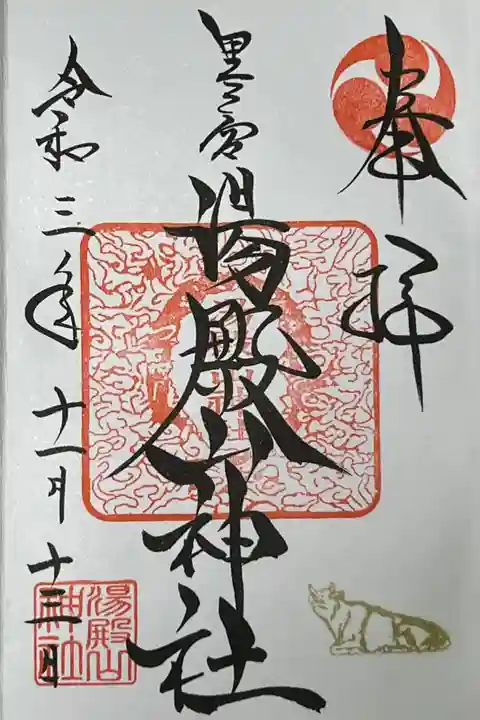 奉拝
里之宮
湯殿山神社
令和三年十一月十三日
湯殿山
神社